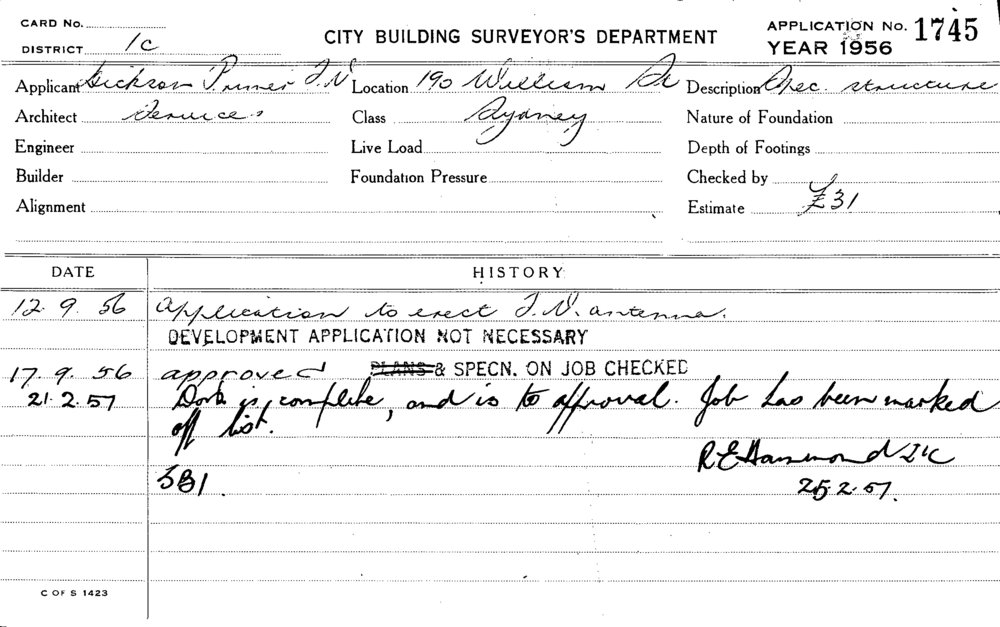 CARD No.
DISTRICT 1c
CITY BUILDING SURVEYOR'S DEPARTMENT
APPLICATION No. 1745
YEAR 1956
Applicant Dickson Primer T.V. Location 190 William St Description Spec. structure
Architect Services Class Sydney Nature of Foundation
Engineer Live Load Depth of Footings
Builder Foundation Pressure Checked by
Alignment Estimate £31
DATE HISTORY
12.9.56 Application to erect T.V. antenna.
DEVELOPMENT APPLICATION NOT NECESSARY
17.9.56 approved PLANS & SPECN. ON JOB CHECKED
21.2.57 Work is complete, and is to approval. Job has been marked
off list.
R E Hammond
SB1. 25.2.57.
C OF S 1423